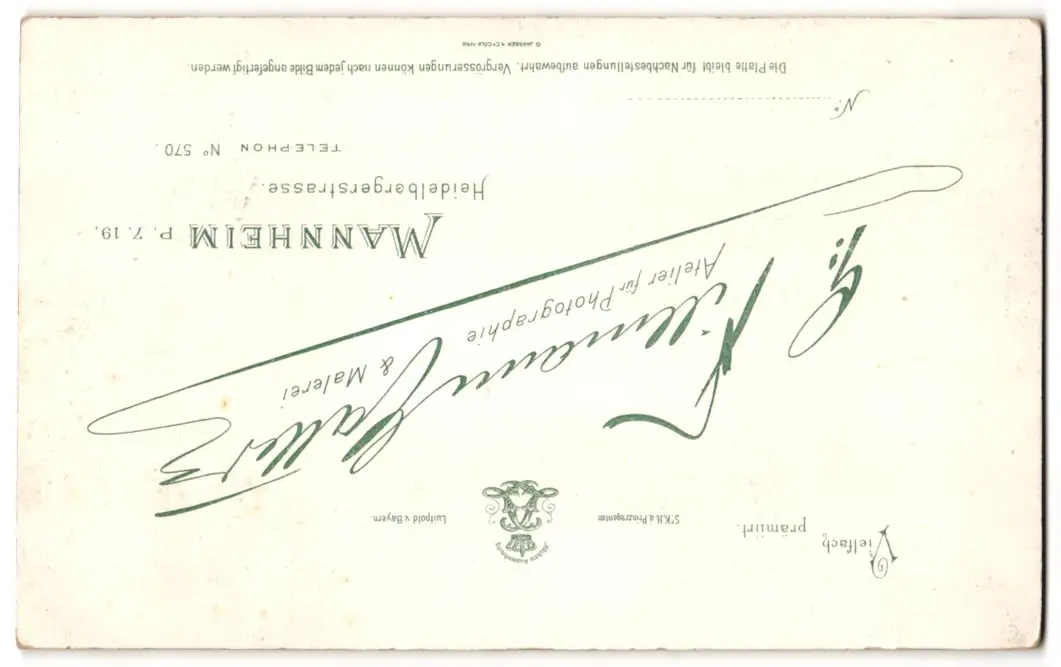 Vielfach prämiirt.
Höchste Auszeichnung
Sr K.H. d. Prinzregenten Luitpold v. Bayern.
G. Tillmann-Matter
Atelier für Photographie & Malerei
MANNHEIM P. 7. 19.
Heidelbergerstrasse.
TELEPHON No 570.
No.
Die Platte bleibt für Nachbestellungen aufbewahrt. Vergrösserungen können nach jedem Bilde angefertigt werden.